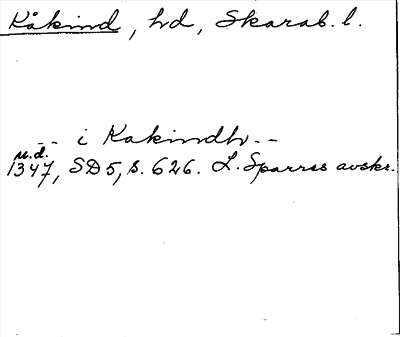 Kåkind, hd, Skarab. l.
-- i Kakindh. --
u.d.
1347, SD 5, s. 626. L. Sparres avskr.